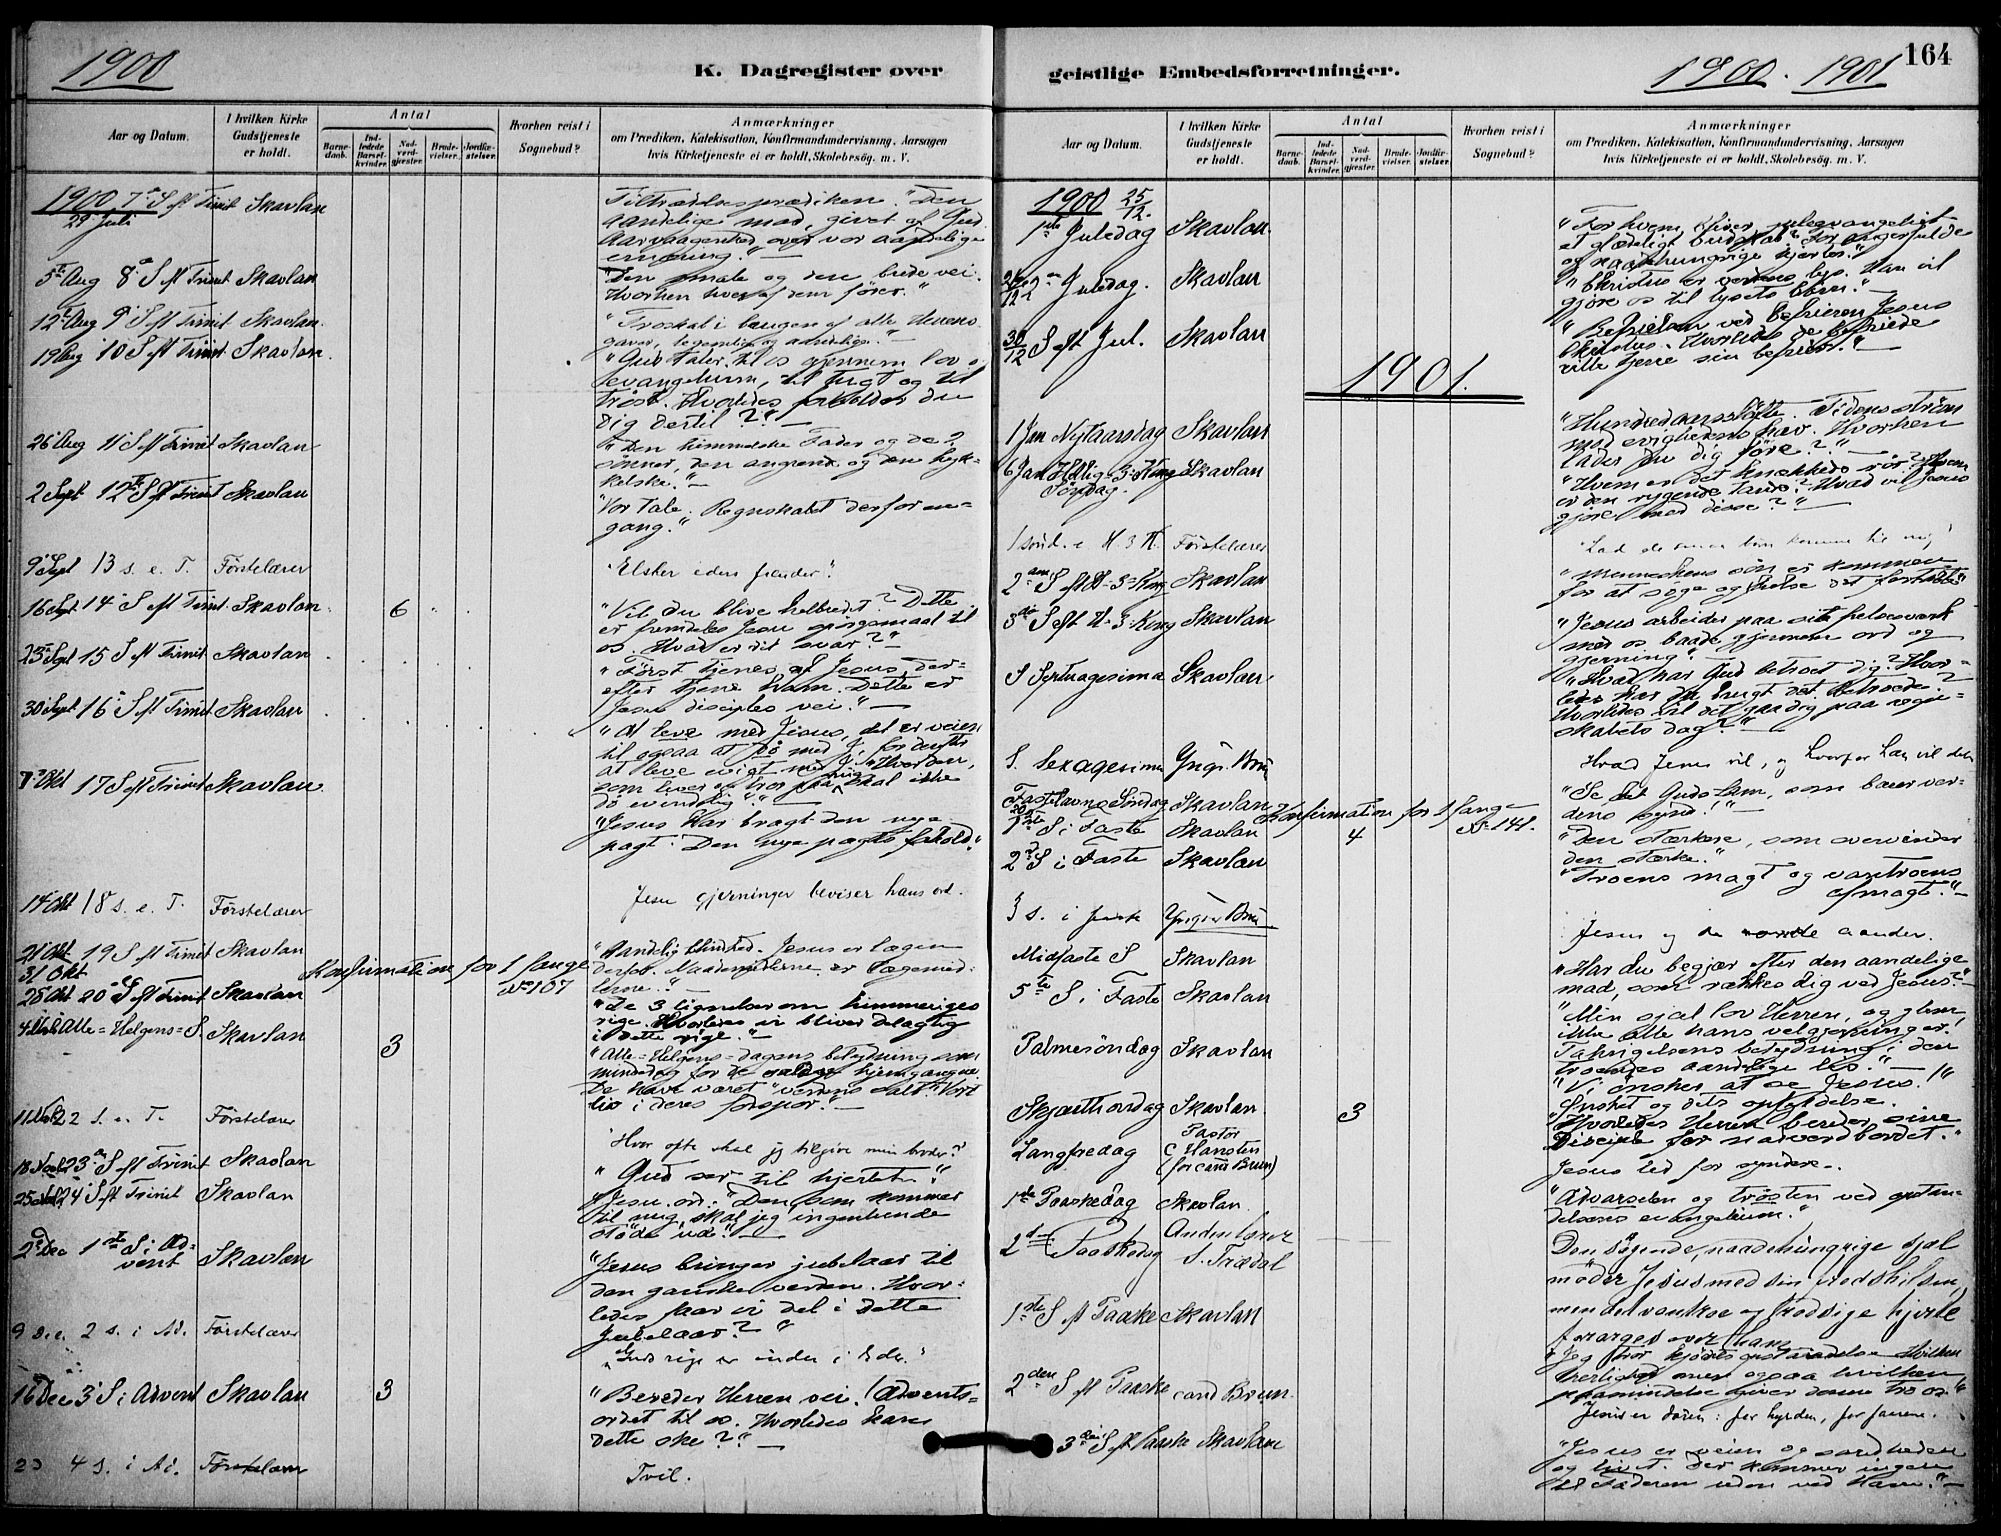 1900
K. Dagregister over
Aar og Datum.
I hvilken Kirke Gudstjeneste er holdt.
Antal
Barnedaab.
Indledede Barselkvinder.
Nadverdgjæster.
Brudevielser.
Jordfæstelser.
Hvorhen reist i Sognebud?
Anmærkninger
om Prædiken, Katekisation, Konfirmandundervisning, Aarsagen
hvis Kirketjeneste ei er holdt, Skolebesøg. m. V.
1900 7de S. eft Trinit Skavlan
29 Juli
Tiltrædelsesprædiken. "Den
aandelige mad, givet af Gud
5te Aug 8de S eft Trinit Skavlan
"Den smale og den brede vei.
Hvorhen hver af dem fører."
12te Aug 9de S eft Trinit Skavlan.
"Troskab i brugen af alle Herrens
gaver, legemlige og aandelige."
19 Aug 10 S eft Trinit Skavlan
"Gud taler til os gjennem lov og
evangelium, til tugt og til
trøst. Hvorledes forholder du
dig dertil?"
26 Aug 11 S eft Trinit Skavlan
"Den himmelske Fader og de 2
sønner, den angrende og den hyk-
kelske."
2 Sept 12te S eft Trinit Skavlan
"Vor tale. Regnskabet derfor en-
gang."
9 Sept 13 s. e. T. Førstelærer
"Elsker eders fiender".
16 Sept 14 S eft Trinit Skavlan 6
"Vil du blive helbredet? Dette
er fremdeles Jesu spørgsmaal til
os. Hvad er dit svar?"
23 Sept 15 S eft Trinit Skavlan
"Først tjenes af Jesus, der-
efter tjene ham. Dette er
Jesu disciples vei."
30 Sept 16 S eft Trinit Skavlan
"At leve med Jesus, det er veien
til ogsaa at dø med J, for derefter
at leve evigt med J. "Hver den,
som lever og tror paa mig skal ikke
dø evindelig"."
7 Okt 17 S eft Trinit Skavlan
"Jesus har bragt den nye
pagt. Den nye pagts forhold."
14 Okt 18 s. e. T. Førstelærer
Jesu gjerninger beviser hans ord.
21 Okt 19 S eft Trinit Skavlan
"Aandelig blindhed. Jesus er lægen
derfor. Naademidlerne er lægemid-
lerne."
31 Okt Konfirmation for 1 fange
No 107
28 Okt 20 S eft Trinit Skavlan
"De 3 lignelser om himmeriges
rige. Hvorledes vi bliver delagtig
i dette rige."
4 Nov Alle=Helgens=S. Skavlan 3
"Alle=Helgens=dagens betydning som
mindedag for de salige hjemgangne.
De have været "verdens salt". Vort
liv i deres fodspor."
11 Nov 22 s. e. T. Førstelærer
"Hvor ofte skal jeg tilgive min broder?
18 Nov 23 S eft Trinit Skavlan
"Gud ser til hjertet."
25 Nov 24 S eft Trinit Skavlan
Jesu ord: "Den som kommer
til mig, skal jeg ingenlunde
støde ud".
2 Dec 1ste S i Ad-
vent Skavlan
"Jesus bringer jubelaar til
den ganske verden. Hvor-
ledes faar vi del i dette
jubelaar?"
9 Dec. 2 s. i Ad. Førstelærer
"Guds rige er inden i Eder."
16 Dec 3 S i Advent Skavlan 3
"Bereder Herren vei! Advents-
ordet til os. Hvorledes kan
dette ske?"
23 4 s. i Ad. Førstelærer
Tvil.
geistlige Embedsforretninger.
1900. 1901
164
Aar og Datum.
I hvilken Kirke Gudstjeneste er holdt.
Antal
Barnedaab.
Indledede Barselkvinder.
Nadverdgjæster.
Brudevielser.
Jordfæstelser.
Hvorhen reist i Sognebud?
Anmærkninger
om Prædiken, Katekisation, Konfirmandundervisning, Aarsagen
hvis Kirketjeneste ei er holdt, Skolebesøg. m. V.
1900 25/12.
1ste Juledag Skavlan
"For hvem bliver juleevangeliet
et glædeligt budskab? For angerfulde
og naadehungrige hjerter."
26/12 2den Juledag. Skavlan
"Christus er verdens lys. Han vil
gjøre os til lysets børn."
30/12 S eft Jul. Skavlan
"Befrielsen ved befrieren Jesus
Christus. Hvorledes de befriede
ville tjene sin befrier."
1901.
1 Jan Nytaarsdag Skavlan
"Hundredaarsskifte. Tidens strøm
mod evighedens hav. Hvorhen
lader du dig føre?"
6 Jan Hellig=3=Kong Skavlan
Søndag.
"Hvem er det knækkede rør? Hvem
er den rygende tande? Hvad vil Jesus
gjøre med disse?"
1 sønd. e H. 3 K. Førstelærer
"Lad de smaa børn komme til mig!
2den S eft H=3=Kong Skavlan
"Menneskens søn er kommen
for at søge og frelse det fortabte"
3die S eft H=3=Kong Skavlan
"Jesus arbeider paa sit frelsesverk
med os baade gjennem ord og
gjerning".
S Septuagesima Skavlan
"Hvad har Gud betroet dig? Hvor-
ledes har du brugt det betroede?
Hvorledes vil det gaa dig paa regn-
skabets dag?"
S. Sexagesima Yngv. Brun
Hvad Jesus vil, og hvorfor han vil det
Fastelavns Søndag Skavlan
"Se det Guds lam, som bærer ver-
dens synd!"
Konfirmation for 1 fange
No 141.
1ste S i Faste Skavlan 4
"Den stærkere, som overvinder
den stærke."
2den S i Faste Skavlan
"Troens magt og vantroens
afmagt."
3 s. i faste Yngvar Brun
Jesus og de onde aander.
Midfaste S Skavlan
"Har du begjær efter den aandelige
mad, som rækkes dig ved Jesus?"
5te S i Faste Skavlan
"Min sjæl lov Herren, og glem
ikke alle hans velgjerninger!
Taknigelsens betydning i den
troendes aandelige liv."
Palmesøndag Skavlan
"Vi ønsker at se Jesus!"
Ønsket og dets opfyldelse.
Skjærthorsdag Skavlan 3
"Hvorledes Herren bereder sine
Disciple for nadverdbordet."
Langfredag Pastor
C Hansten
(for cand Brun)
Jesus led for syndere.
1ste Paaskedag Skavlan.
"Advarselen og trøsten ved opstan-
delsens evangelium."
2den Paaskedag Andenlærer
S. Trædal
Den søgende, naadehungrige sjæl
møder Jesus med sin fredshilsen,
men det vantroe og trodsige hjerte
forarges over Ham
1ste S eft Paaske Skavlan
"Jeg tror kjødets opstandelse. Hvilken
herlighed men ogsaa hvilken
paamindelse giver denne tro os."
2den S eft Paaske cand Brun.
Jesus er døren: for hyrden, for faarene.
3die S eft Paaske Skavlan
"Jesus er veien og sandheden
og livet. Der kommer ingen
til Faderen uden ved Ham."